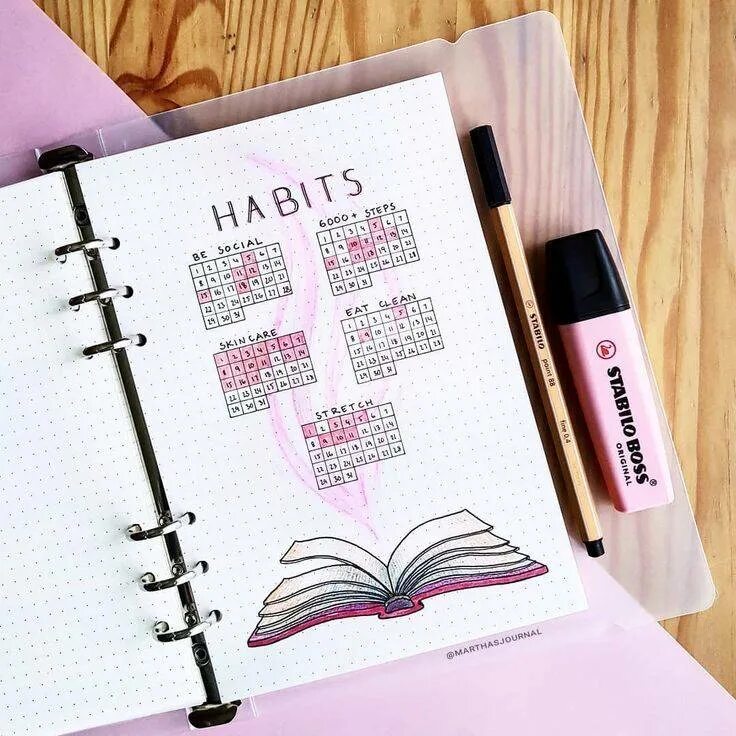 HABITS
BE SOCIAL
1 2 3 4 5 6 7
8 9 10 11 12 13 14
15 16 17 18 19 20 21
22 23 24 25 26 27 28
29 30 31
6000+ STEPS
1 2 3 4 5 6 7
8 9 10 11 12 13 14
15 16 17 18 19 20 21
22 23 24 25 26 27 28
29 30 31
SKINCARE
1 2 3 4 5 6 7
8 9 10 11 12 13 14
15 16 17 18 19 20 21
22 23 24 25 26 27 28
29 30 31
EAT CLEAN
1 2 3 4 5 6 7
8 9 10 11 12 13 14
15 16 17 18 19 20 21
22 23 24 25 26 27 28
29 30 31
STRETCH
1 2 3 4 5 6 7
8 9 10 11 12 13 14
15 16 17 18 19 20 21
22 23 24 25 26 27 28
29 30 31
@MARTHASJOURNAL
STABILO point 88 fine 0,4
STABILO BOSS
ORIGINAL